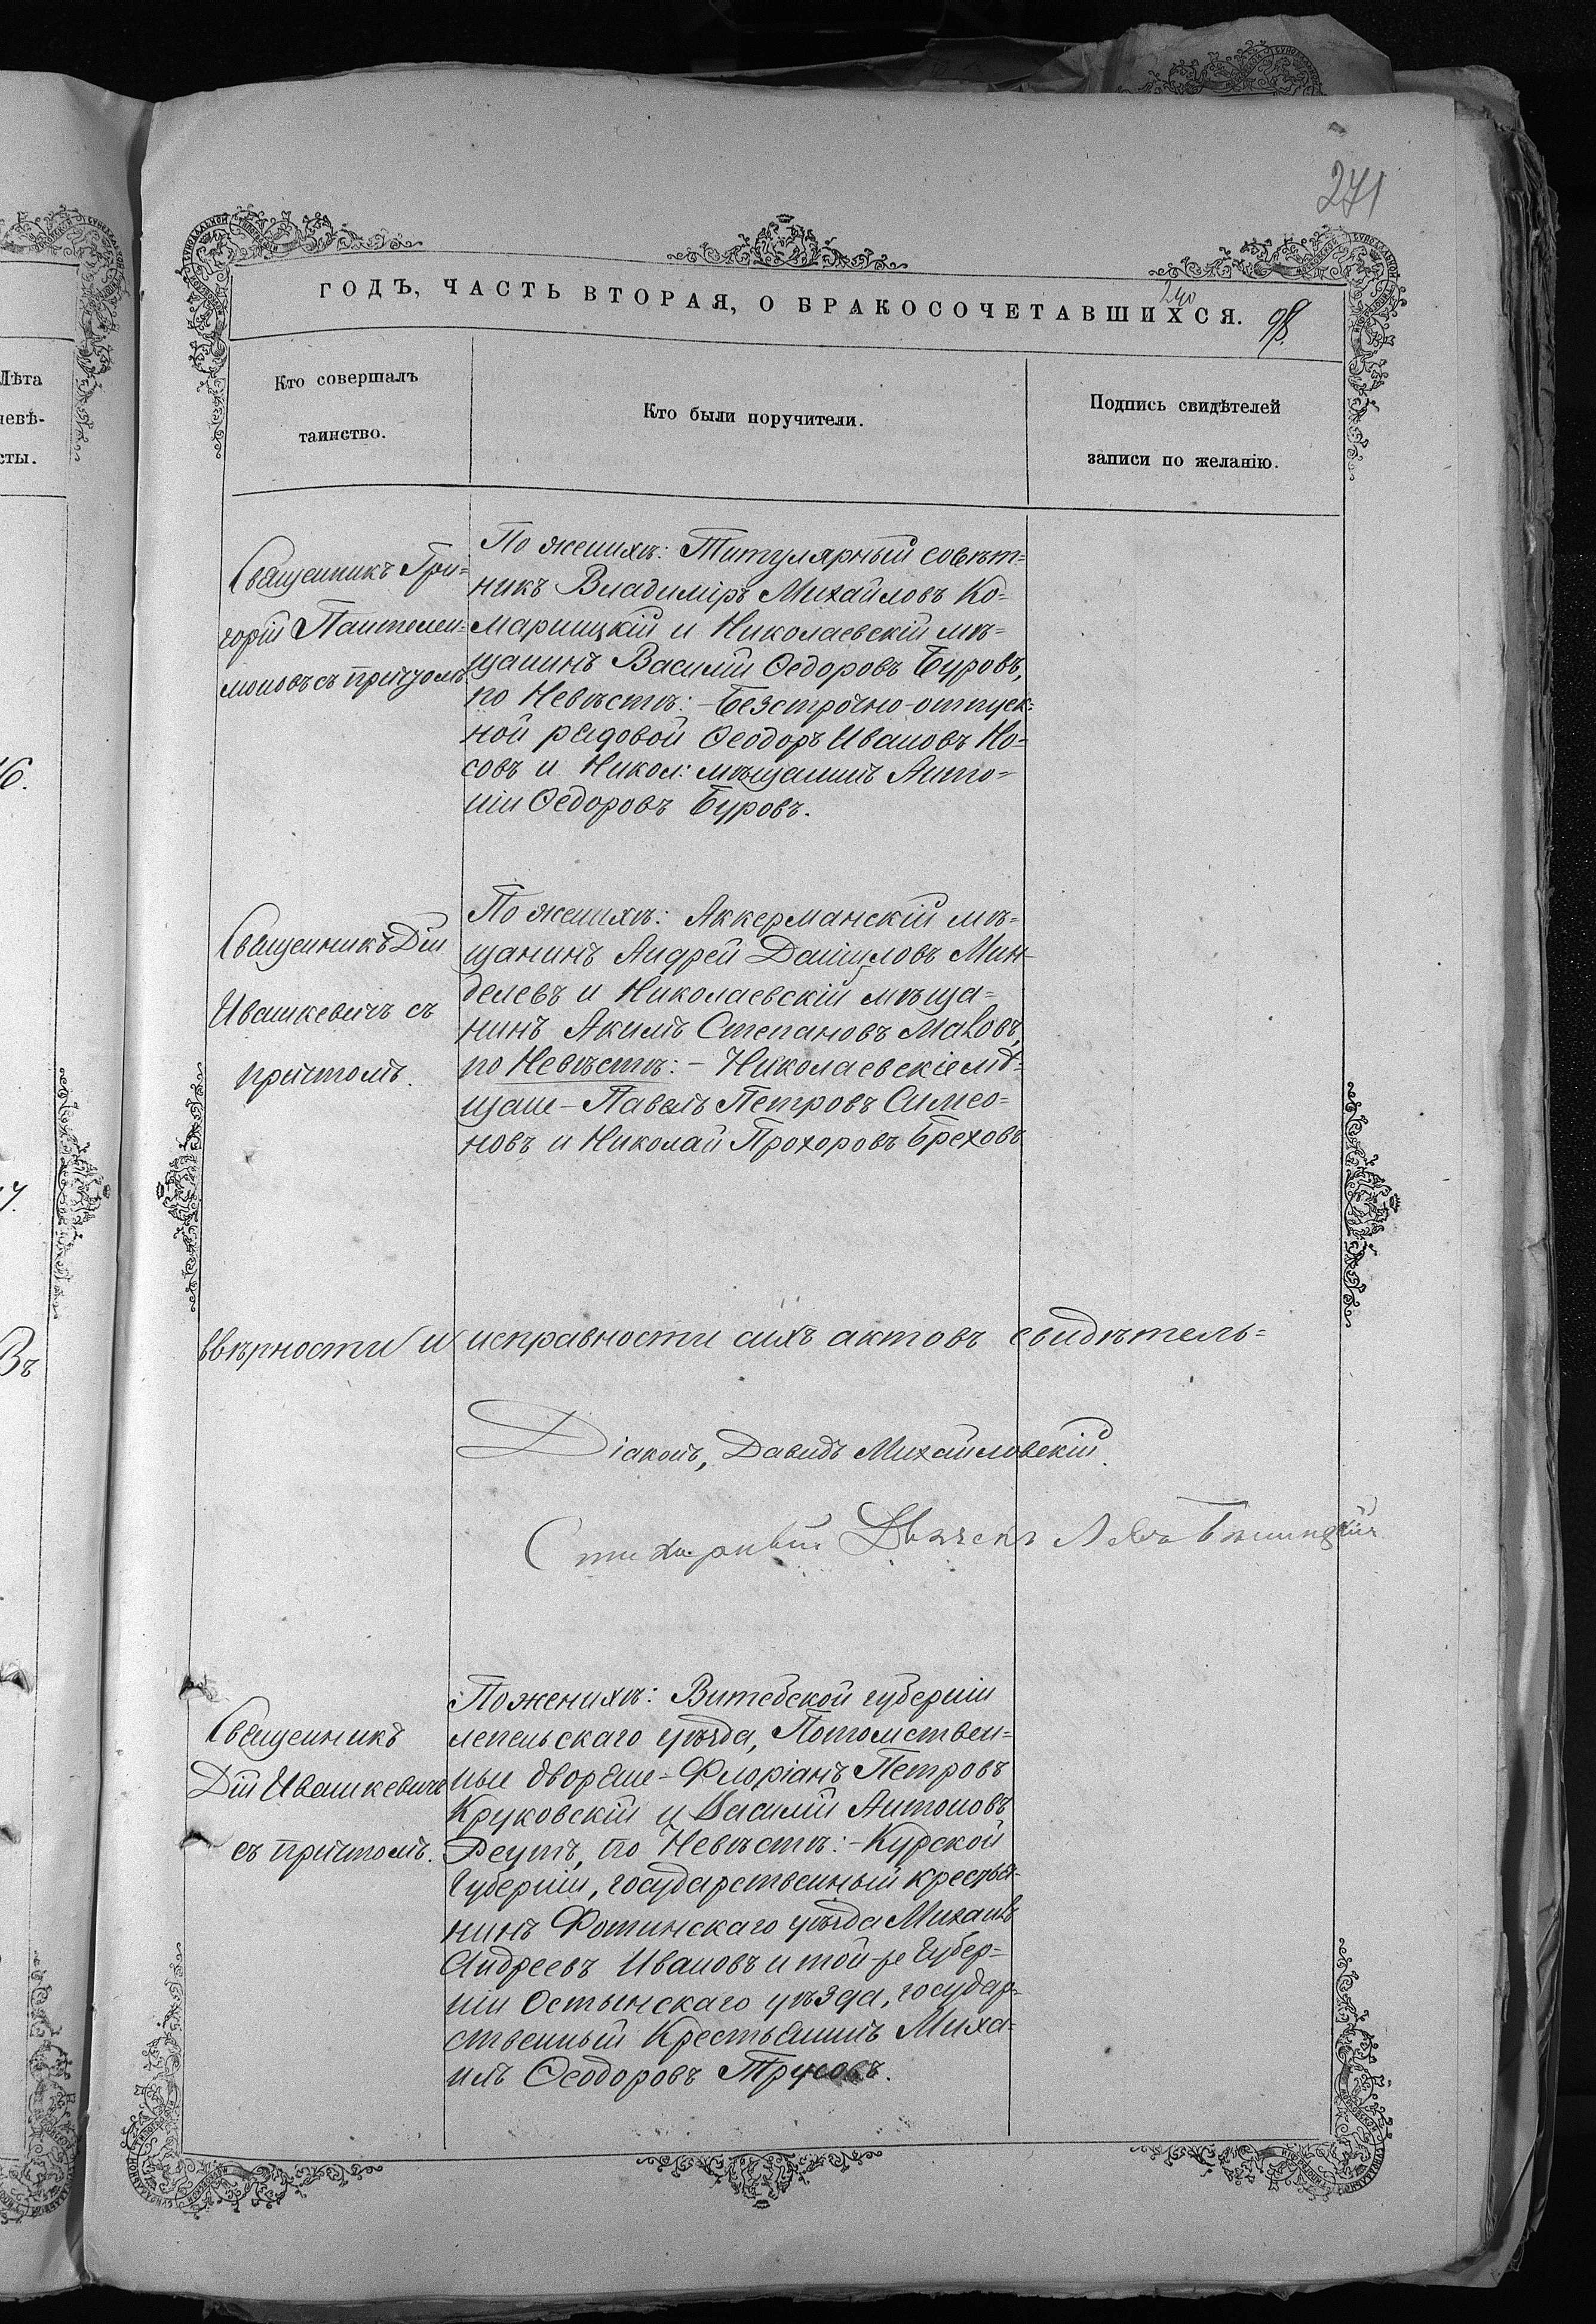 271
ГОДЪ, ЧАСТЬ ВТОРАЯ, О БРАКОСОЧЕТАВШИХСЯ.
240
98.
Лѣта
невѣ-
сты.
Кто совершалъ
таинство.
Кто были поручители.
Подпись свидѣтелей
записи по желанію.
Священникъ Гри=
горій Пантелеи=
моновъ съ причтомъ
По женихѣ: Титулярный совѣт=
никъ Владиміръ Михайловъ Ко=
марницкій и Николаевскій мѣ=
щанинъ Василій Ѳедоровъ Буровъ,
по Невѣстѣ: - Безсрочно-отпуск=
ной рядовой Ѳеодоръ Ивановъ Но=
совъ и Никол: мѣщанинъ Анто=
ній Ѳедоровъ Буровъ.
Священникъ Дій
Ивашкевичъ съ
причтомъ.
По женихѣ: Аккерманскій мѣ=
щанинъ Андрей Даніиловъ Мин-
делевъ и Николаевскій мѣща=
нинъ Акимъ Степановъ Маковъ,
по Невѣстѣ: - Николаевскіе мѣ-
щане - Павелъ Петровъ Симео=
новъ и Николай Прохоровъ Бреховъ
вѣрности и исправности сихъ актовъ свидѣтель=
Діаконъ, Давидъ Михайловскій.
Стихарный Дьячекъ Левъ
Священникъ
Дій Ивашкевичъ
съ причтомъ.
По женихѣ: Витебской губерніи
лепельскаго уѣзда, Потомствен=
ные дворяне - Флоріанъ Петровъ
Круковскій и Василій Антоновъ
Реутъ, по Невѣстѣ: - Курской
Губерніи, государственный крестья-
нинъ Фотинскаго уѣзда Михаилъ
Андреевъ Ивановъ и той-же Губер=
ніи Остынскаго уѣзда, государ-
ственный Крестьянинъ Миха-
илъ Ѳеодоровъ Трусовъ.